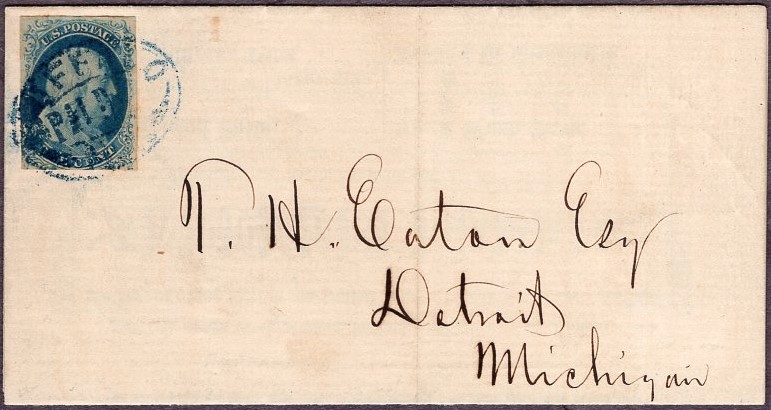 U.S. POSTAGE
PAID
CENT
T. H. Eaton Esq
Detroit
Michigan